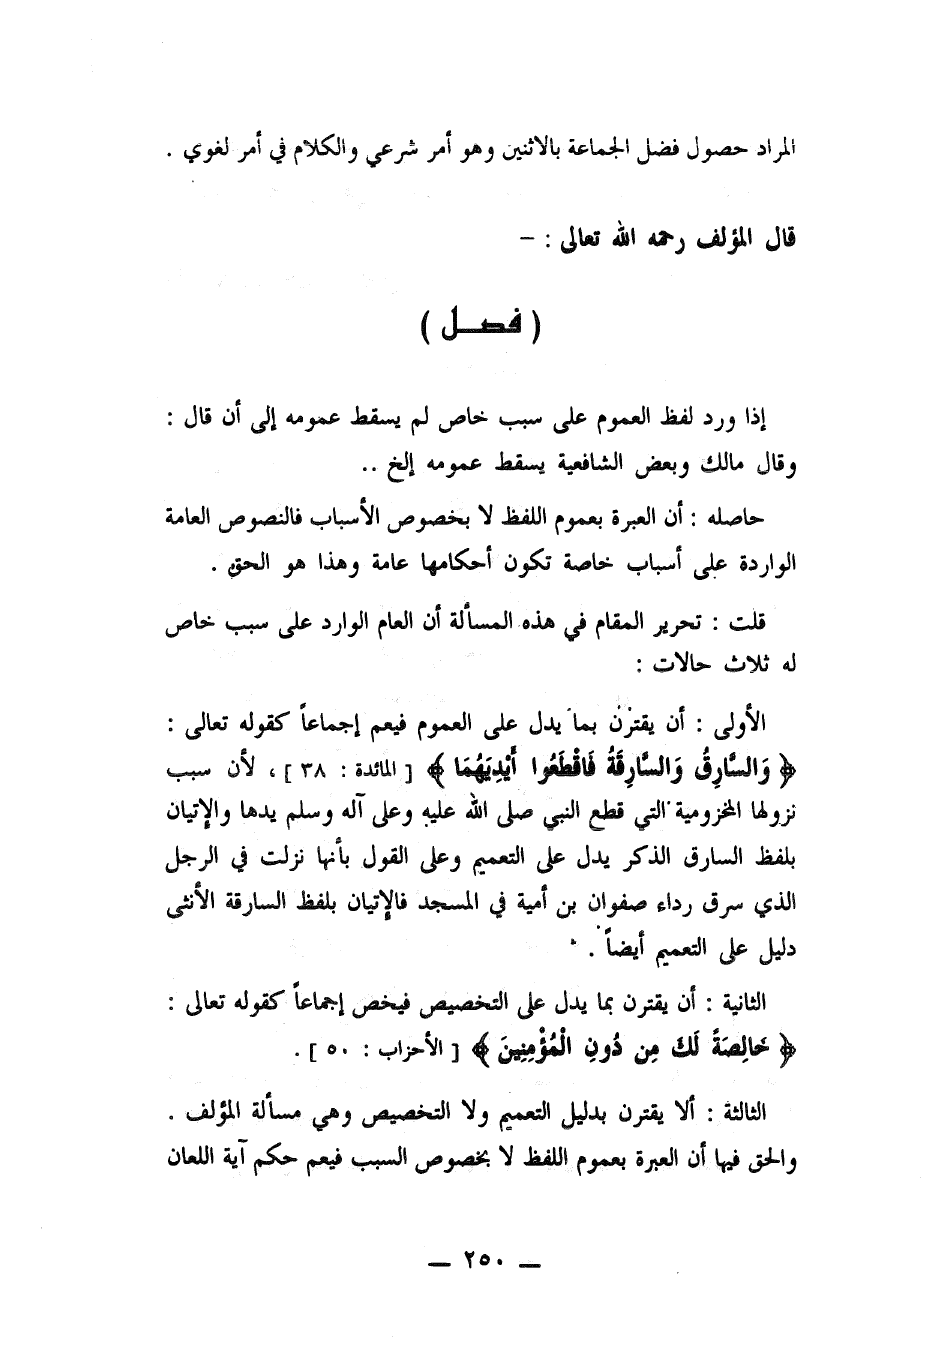 المراد حصول فضل الجماعة بالاثنين وهو أمر شرعي والكلام في أمر لغوي .
قال المؤلف رحمه الله تعالى : –
( فصــل )
إذا ورد لفظ العموم على سبب خاص لم يسقط عمومه إلى أن قال :
وقال مالك وبعض الشافعية يسقط عمومه إلخ ..
حاصله : أن العبرة بعموم اللفظ لا بخصوص الأسباب فالنصوص العامة
الواردة على أسباب خاصة تكون أحكامها عامة وهذا هو الحق .
قلت : تحرير المقام في هذه المسألة أن العام الوارد على سبب خاص
له ثلاث حالات :
الأولى : أن يقترن بما يدل على العموم فيعم إجماعاً كقوله تعالى :
﴿ وَالسَّارِقُ وَالسَّارِقَةُ فَاقْطَعُوا أَيْدِيَهُمَا ﴾ [ المائدة : ٣٨ ] ، لأن سبب
نزولها المخزومية التي قطع النبي صلى الله عليه وعلى آله وسلم يدها والإتيان
بلفظ السارق الذكر يدل على التعميم وعلى القول بأنها نزلت في الرجل
الذي سرق رداء صفوان بن أمية في المسجد فالإتيان بلفظ السارقة الأنثى
دليل على التعميم أيضاً .
الثانية : أن يقترن بما يدل على التخصيص فيخص إجماعاً كقوله تعالى :
﴿ خَالِصَةً لَكَ مِن دُونِ الْمُؤْمِنِينَ ﴾ [ الأحزاب : ٥٠ ] .
الثالثة : ألا يقترن بدليل التعميم ولا التخصيص وهي مسألة المؤلف .
والحق فيها أن العبرة بعموم اللفظ لا بخصوص السبب فيعم حكم آية اللعان
— ٢٥٠ —